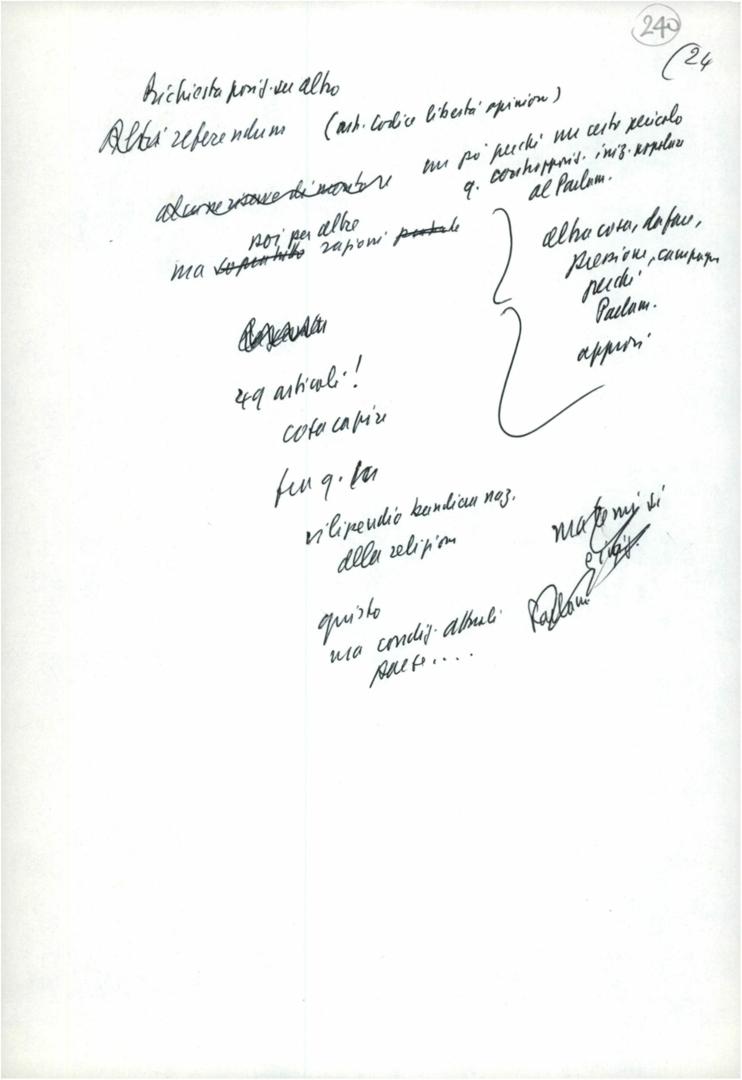 240
(24
Richiesta posiz. su altro
Altri referendum (art. codice libertà opinion)
un po' perché un certo pericolo
q. contrappos. iniz. popolare
al Parlam.
poi per altre
ma ragioni
altra cosa, da fare,
pressione, campagn
perché
Parlam.
approvi
49 articoli!
cosa capire
fra q.
vilipendio bandiera naz.
della religione
ma temi si
giusto
ma condiz. attuali
paese....